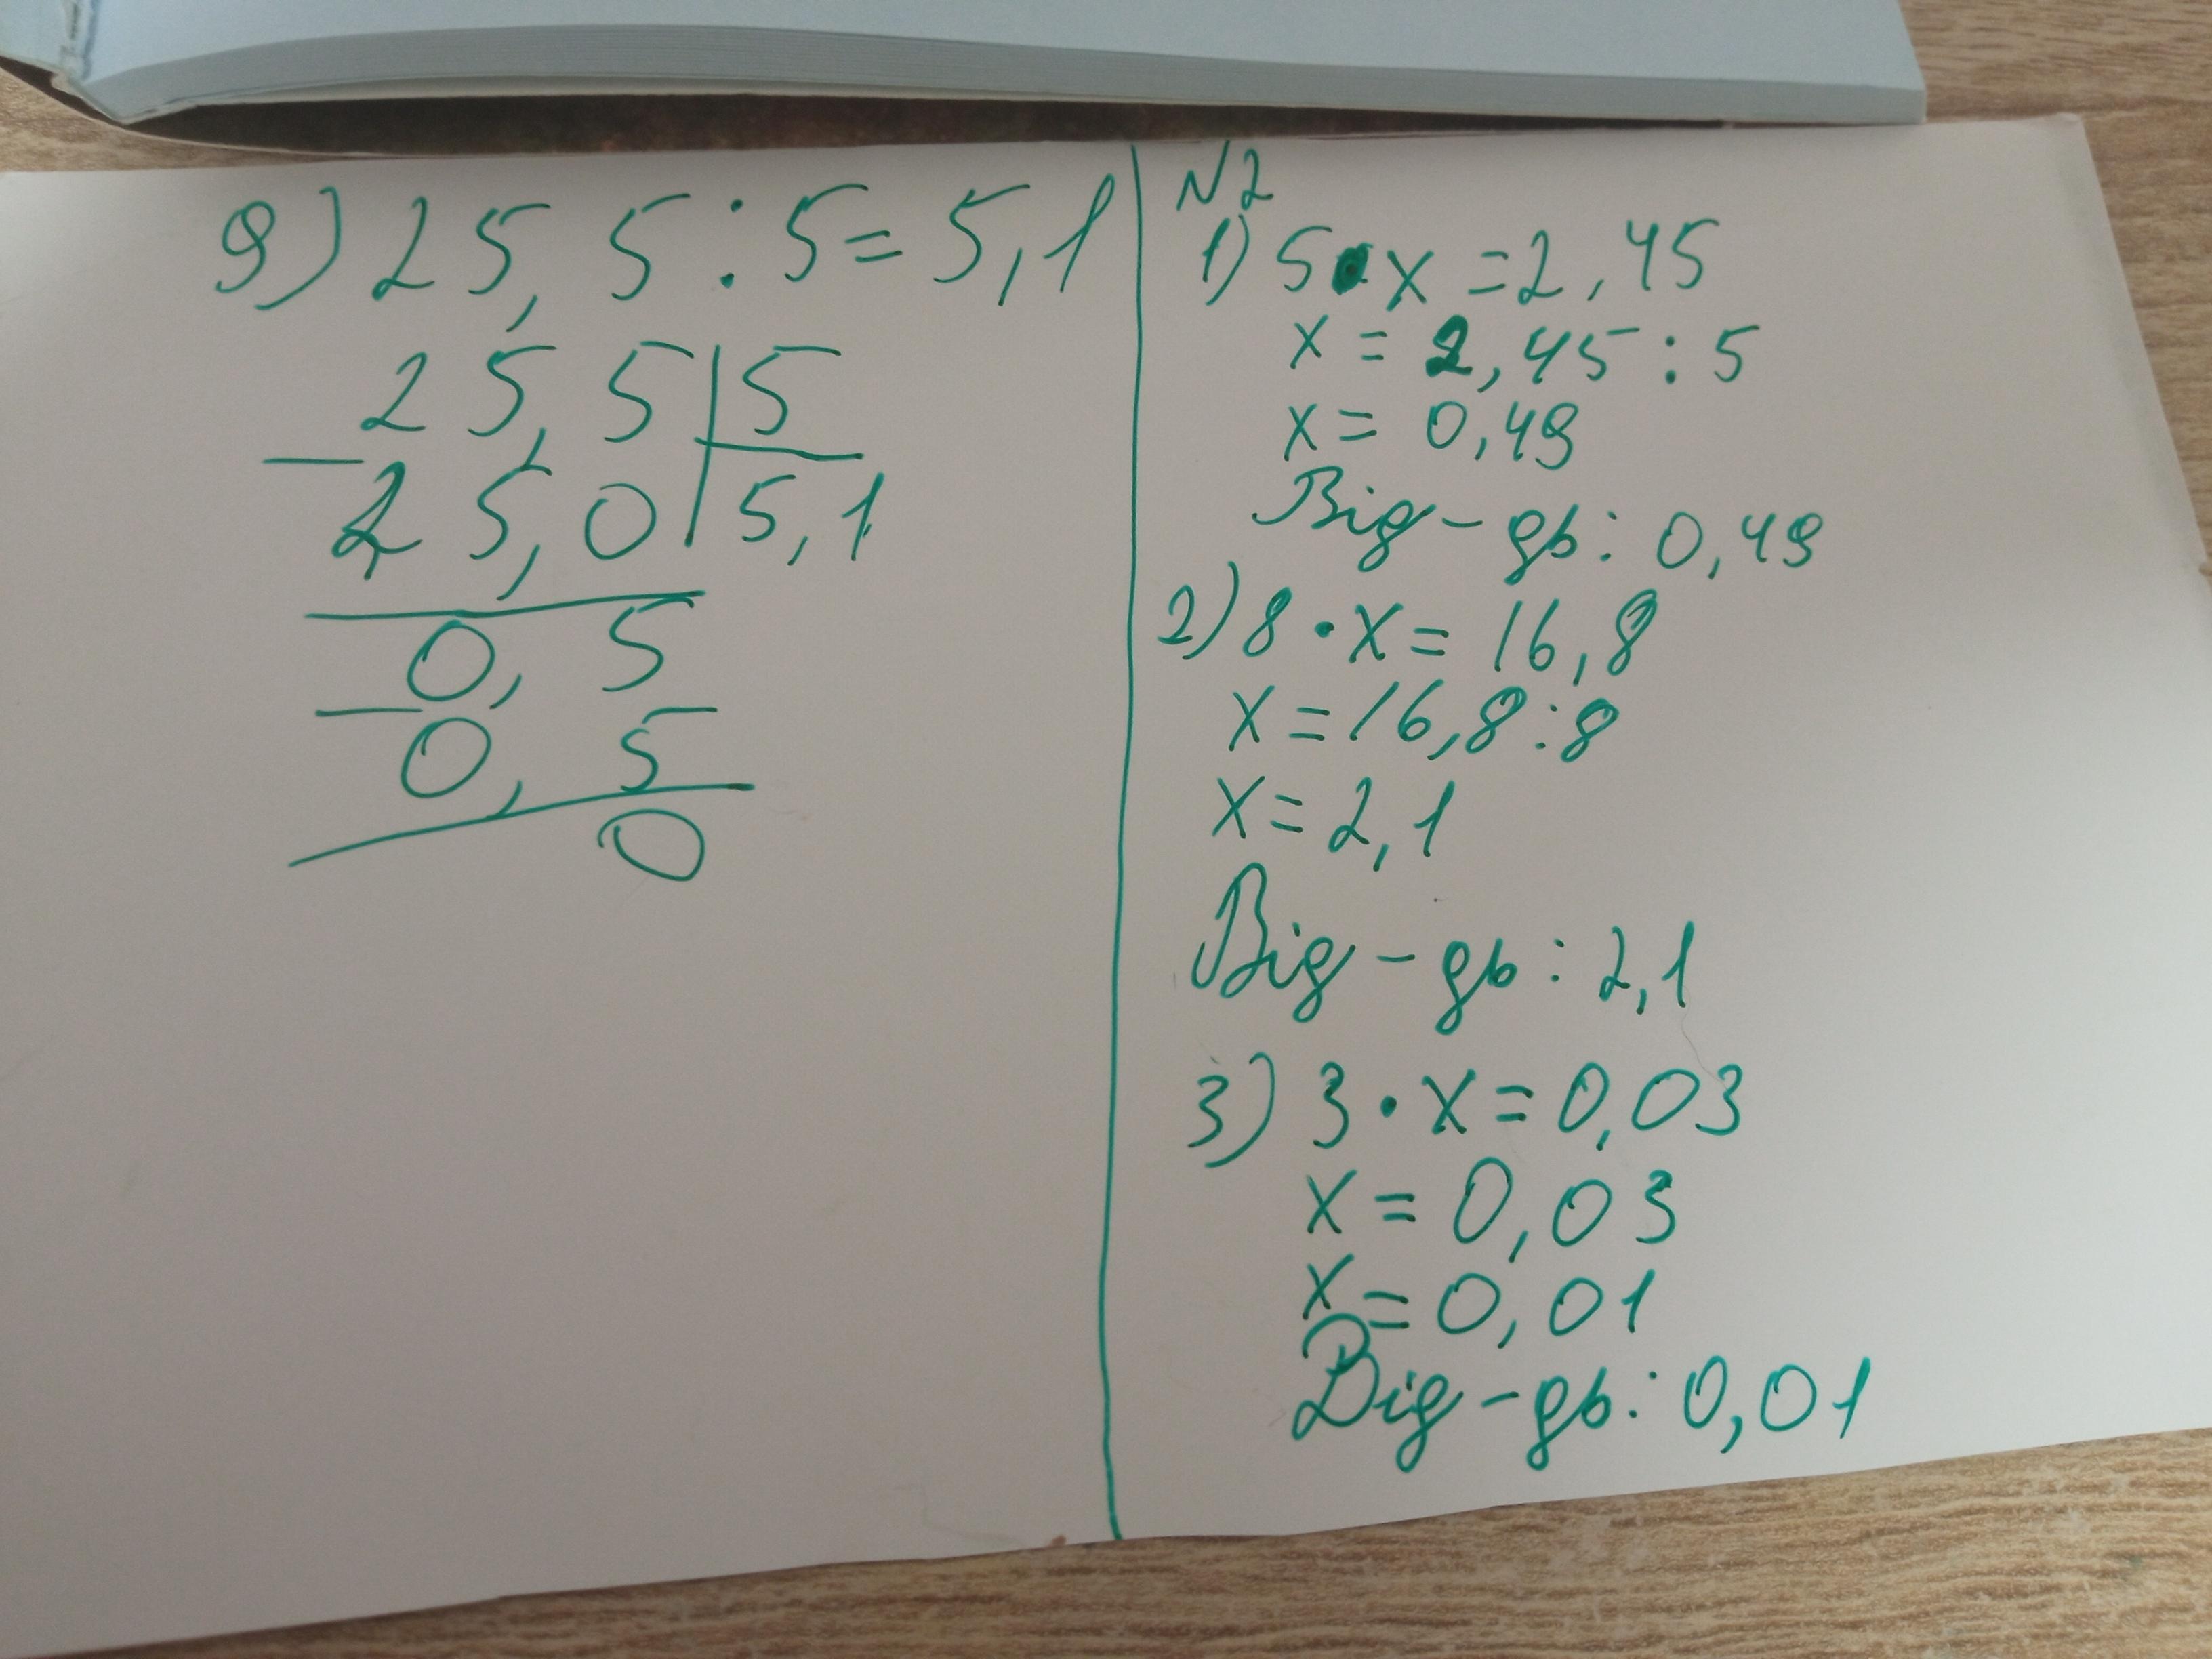 9) 25,5:5=5,1
25,5|5
- 25,0|5,1
0,5
- 0,5
0
N2
1) 5•x=2,45
x = 2,45:5
x = 0,49
Від-дь: 0,49
2) 8•x=16,8
x=16,8:8
x=2,1
Від-дь: 2,1
3) 3•x=0,03
x = 0,03
x = 0,01
Від-дь: 0,01